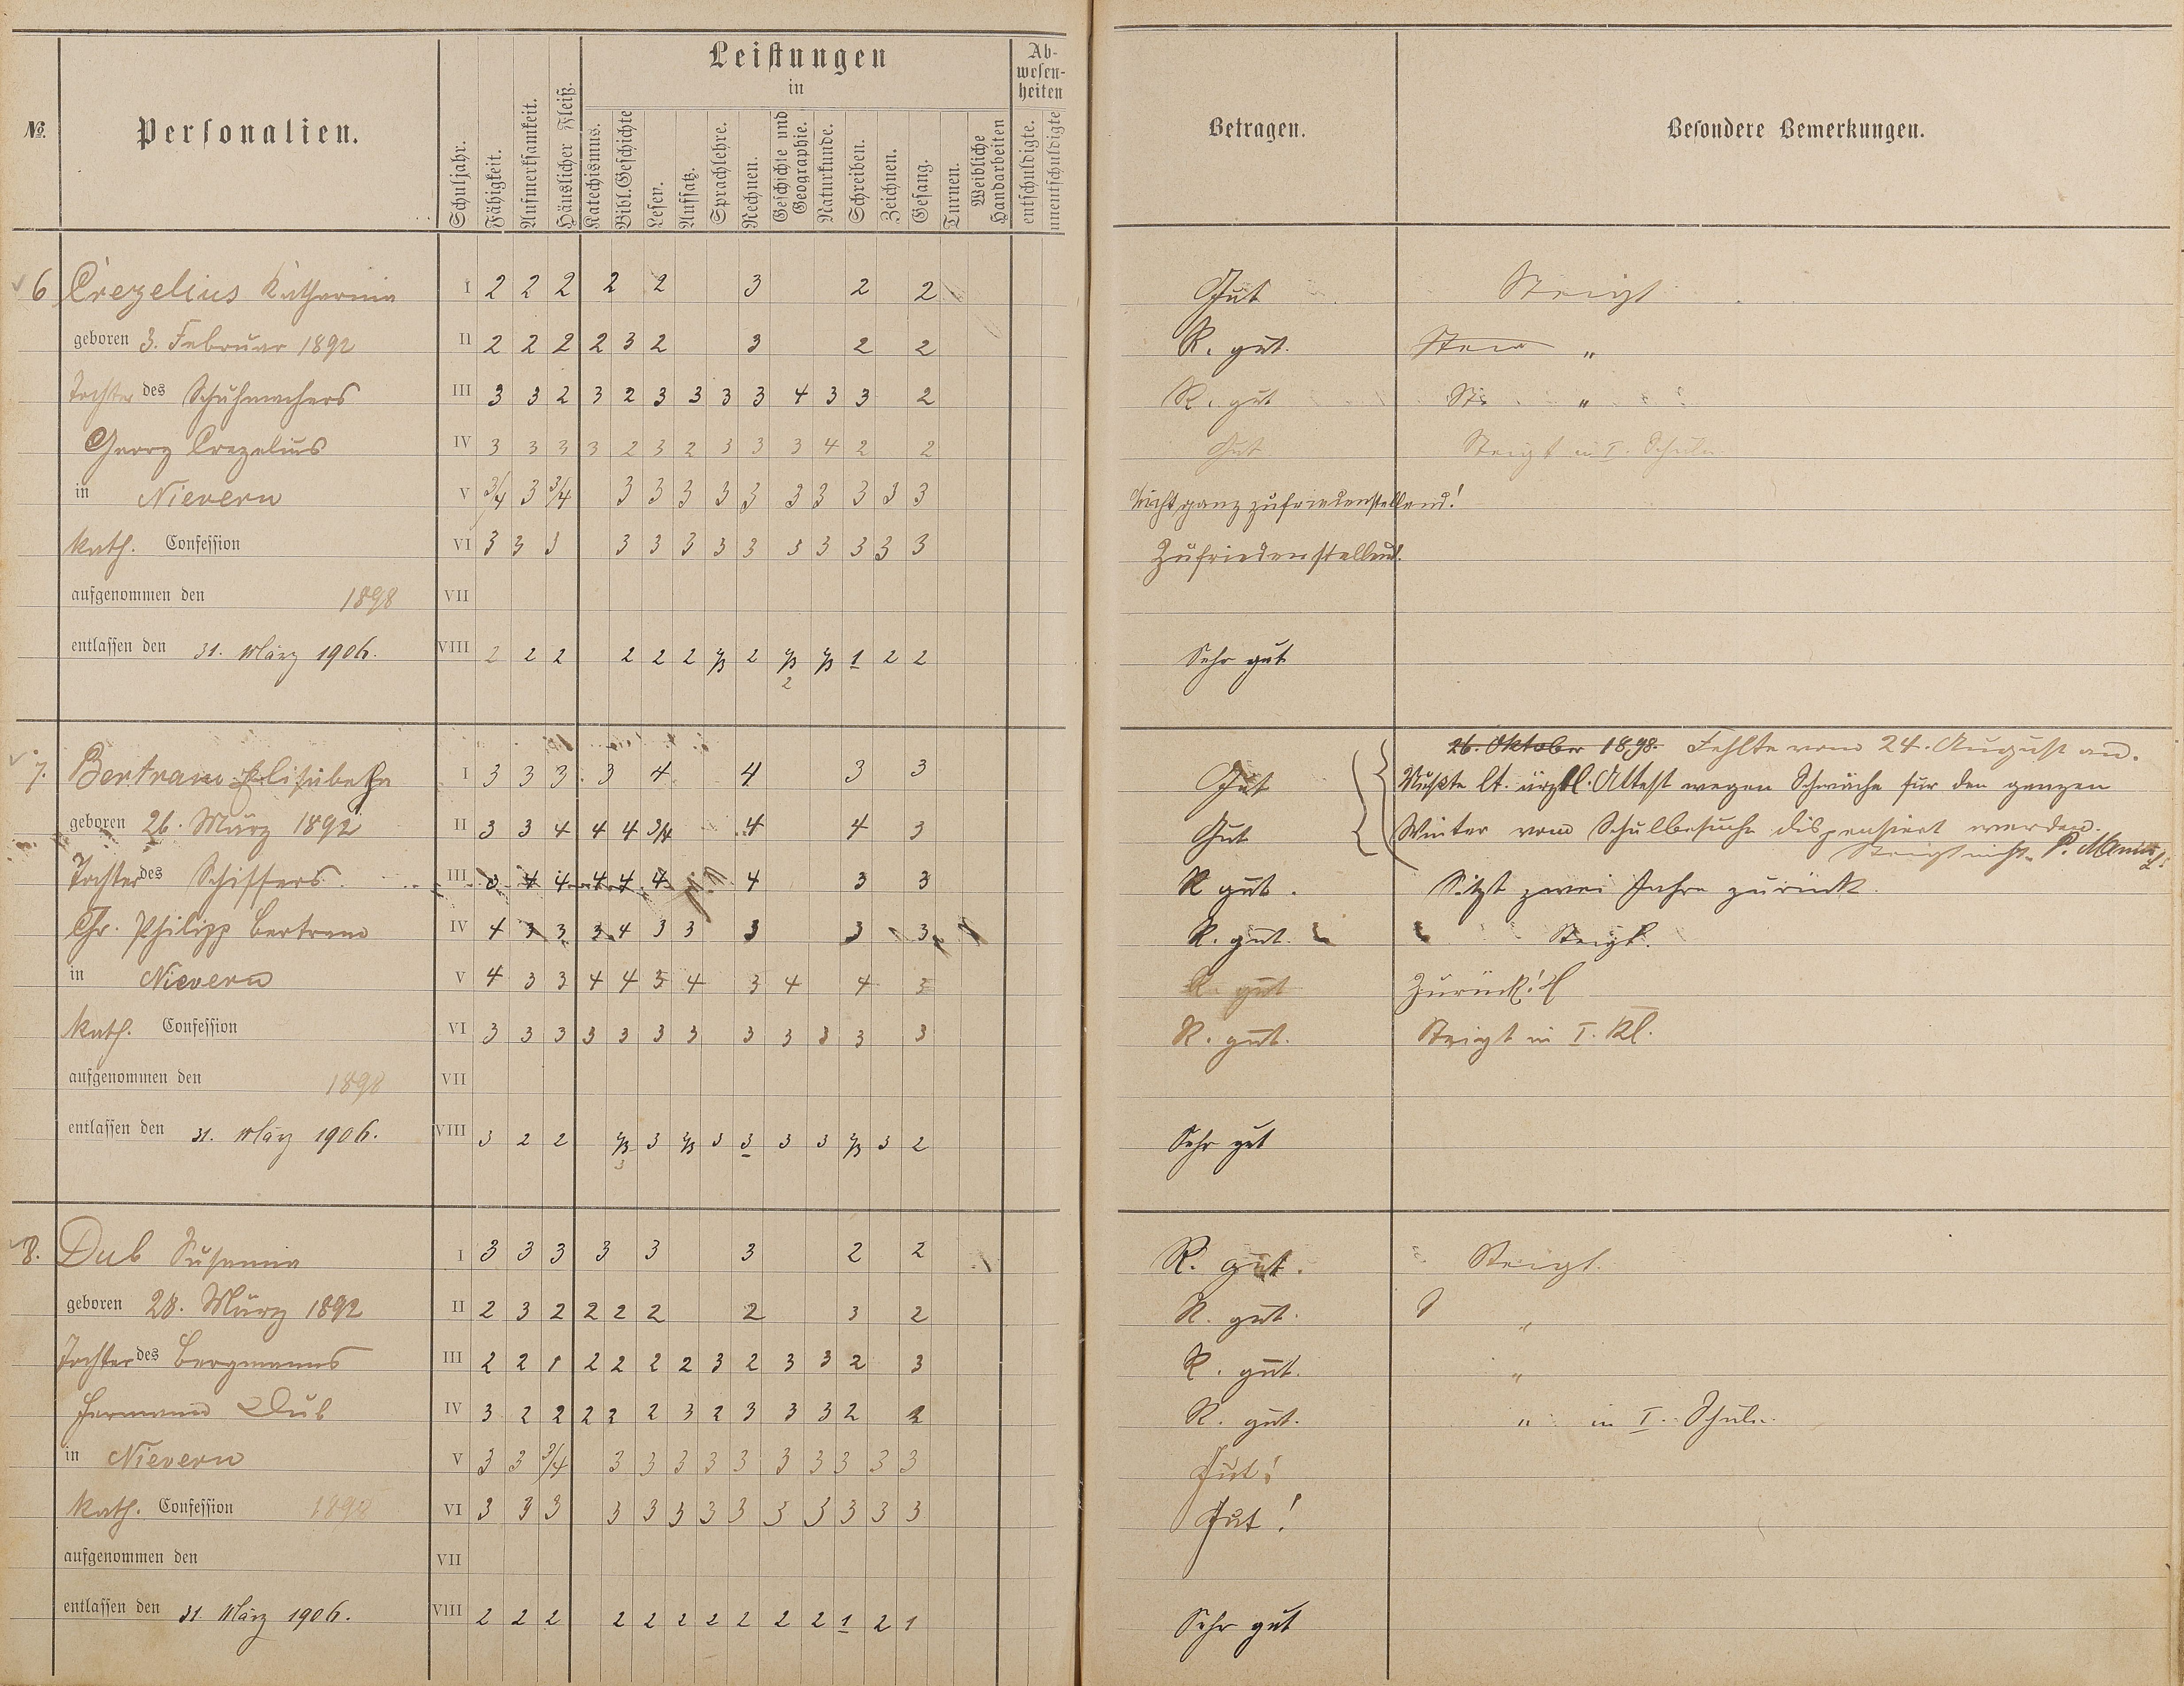 Leistungen
in
Ab-
wesen-
heiten
No.
Personalien.
Schuljahr.
Fähigkeit.
Aufmerksamkeit.
Häuslicher Fleiß.
Katechismus.
Bibl. Geschichte
Lesen.
Aufsatz.
Sprachlehre.
Rechnen.
Geschichte und
Geographie.
Naturkunde.
Schreiben.
Zeichnen.
Gesang.
Turnen.
Weibliche
Handarbeiten
entschuldigte.
unentschuldigte
Betragen.
Besondere Bemerkungen.
6 Crezelius Katharina I 2 2 2 2 2 3 2 2 Gut Steigt
geboren 3. Februar 1892 II 2 2 2 2 3 2 3 2 2 R. gut. "
Tochter des Schuhmachers III 3 3 2 3 2 3 3 3 3 4 3 3 2 R. gut "
Georg Crezelius IV 3 3 3 3 2 3 2 3 3 3 4 2 2 Gut Steigt in I. Schule
in Nievern V 3/4 3 3/4 3 3 3 3 3 3 3 3 3 3 Nicht ganz zufriedenstellend!
kath. Confession VI 3 3 3 3 3 3 3 3 3 3 3 3 3 Zufriedenstellend.
aufgenommen den 1898 VII
entlassen den 31. März 1906. VIII 2 2 2 2 2 2 2/3 2 2/3 2/3 1 2 2 Sehr gut
2
26. Oktober 1898. Fehlte vom 24. August an.
7. Bertram Elisabetha I 3 3 3 3 4 4 3 3 Gut Mußte lt. ärztl. Attest wegen Schwäche für den ganzen
geboren 26. März 1892 II 3 3 4 4 4 3/4 4 4 3 Gut Winter vom Schulbesuche dispensiert werden.
Steigt nicht.
Tochter des Schiffers III 3 4 4 4 4 4 4 3 3 R gut. Sitzt zwei Jahre zurück.
Chr. Philipp Bertram IV 4 3 3 3 4 3 3 3 3 3 R. gut. Steigt.
in Nievern V 4 3 3 4 4 3 4 3 4 4 3 R. gut Zurück!
kath. Confession VI 3 3 3 3 3 3 3 3 3 3 3 3 R. gut. Steigt in I. Kl.
aufgenommen den 1898 VII
entlassen den 31. März 1906. VIII 3 2 2 2/3 3 2/3 3 3 3 3 2/3 3 2 Sehr gut
3
8. Dub Susanna I 3 3 3 3 3 3 2 2 R. gut. Steigt.
geboren 28. März 1892 II 2 3 2 2 2 2 2 3 2 R. gut. "
Tochter des Bergmanns III 2 2 1 2 2 2 2 3 2 3 3 2 3 R. gut. "
Hermann Dub IV 3 2 2 2 2 2 3 2 3 3 3 2 2 R. gut. " in I. Schule.
in Nievern V 3 3 3/4 3 3 3 3 3 3 3 3 3 3 Gut!
kath. Confession 1898 VI 3 3 3 3 3 3 3 3 3 3 3 3 3 Gut!
aufgenommen den VII
entlassen den 31. März 1906. VIII 2 2 2 2 2 2 2 2 2 2 1 2 1 Sehr gut